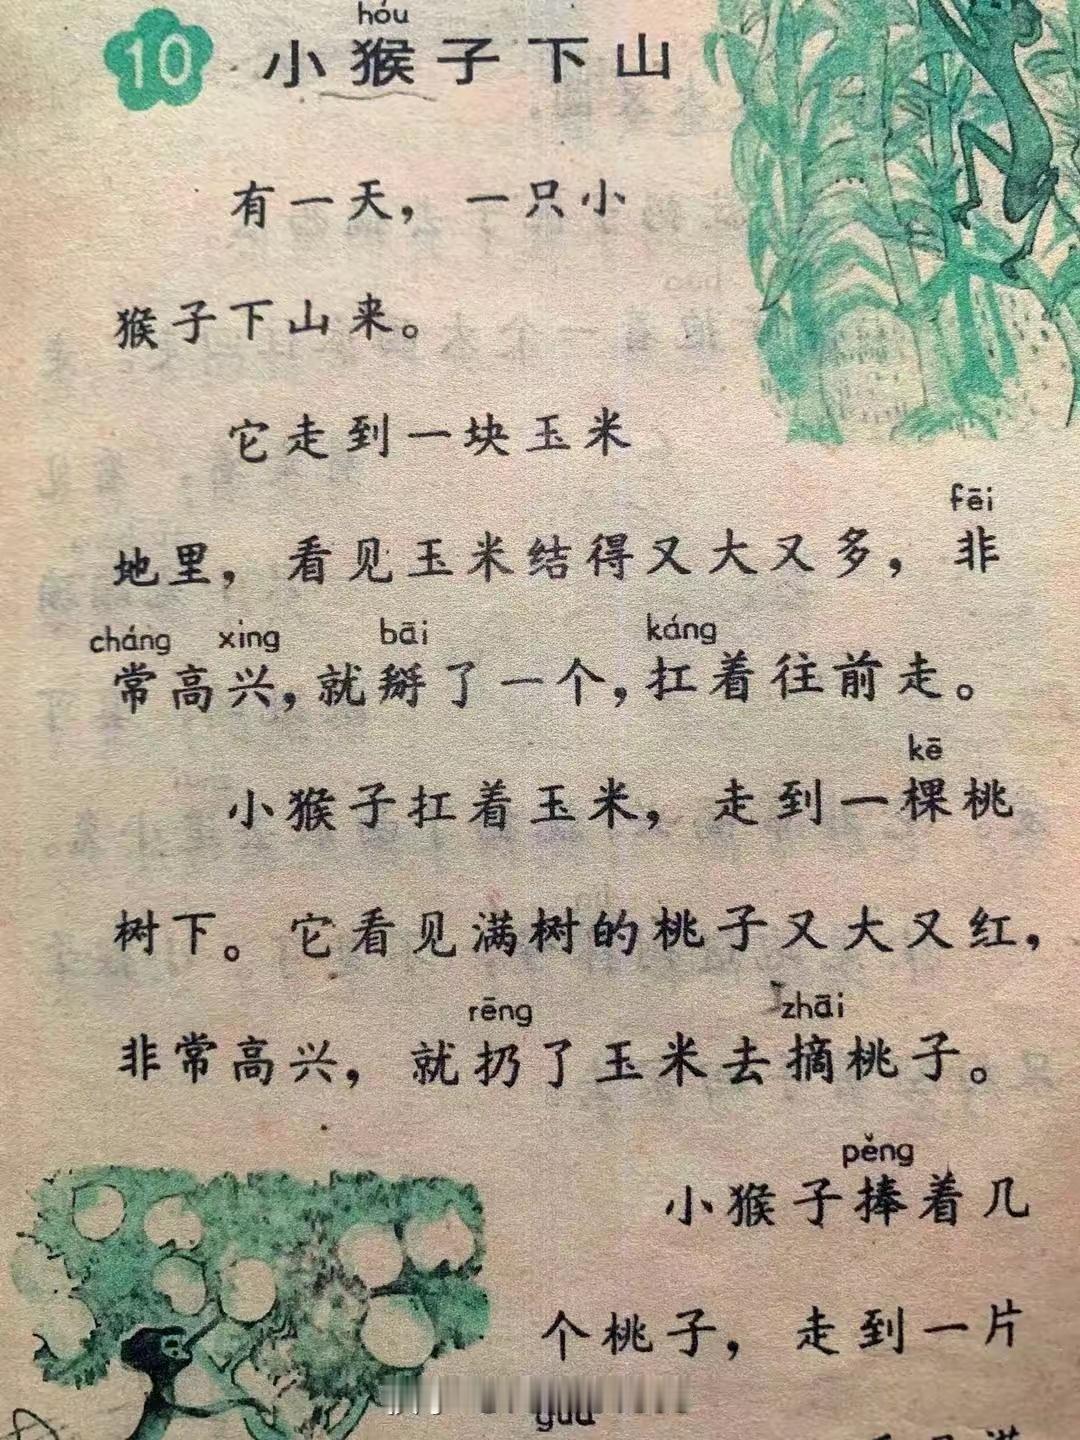 hóu
10 小猴子下山
有一天，一只小
猴子下山来。
它走到一块玉米
fēi
地里，看见玉米结得又大又多，非
cháng xìng bāi káng
常高兴，就掰了一个，扛着往前走。
kē
小猴子扛着玉米，走到一棵桃
树下。它看见满树的桃子又大又红，
rēng zhāi
非常高兴，就扔了玉米去摘桃子。
pěng
小猴子捧着几
个桃子，走到一片